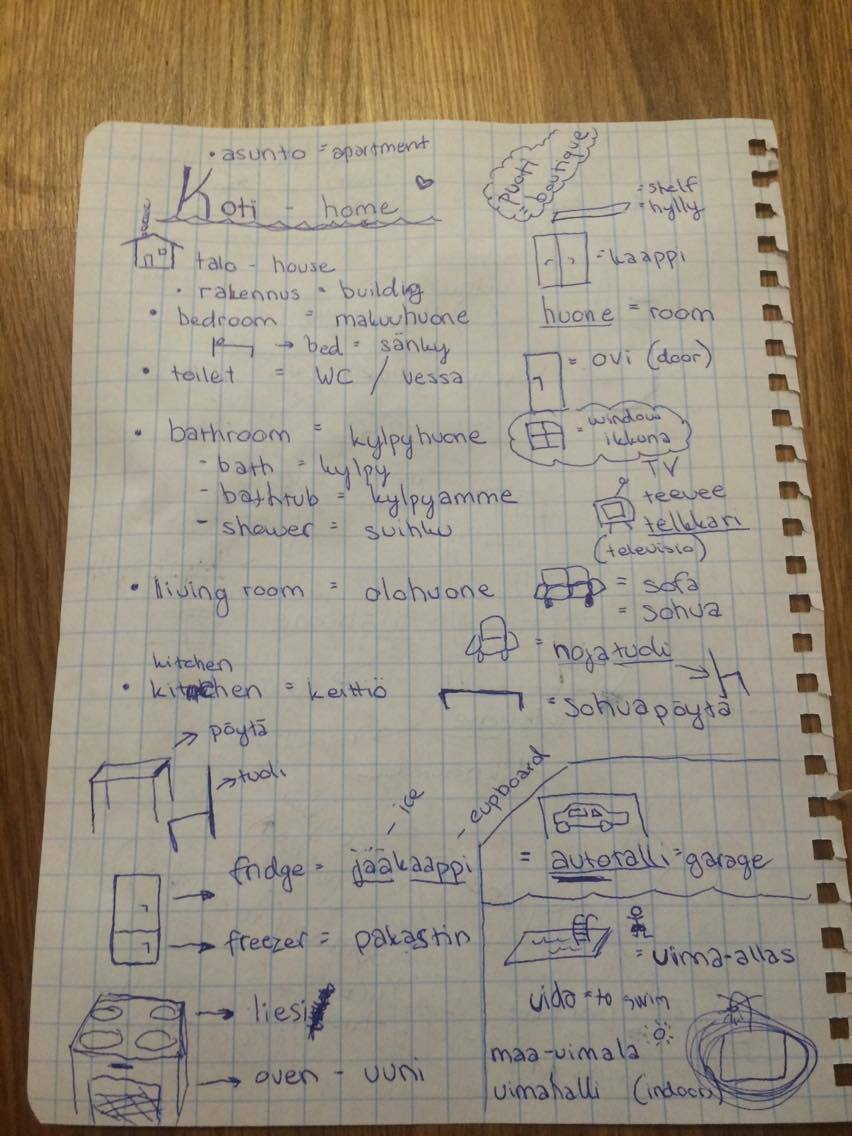 • asunto = apartment
Koti - home
talo - house
• rakennus = building
• bedroom = makuuhuone
→ bed = sänky
• toilet = WC / vessa
• bathroom = kylpyhuone
- bath = kylpy
- bathtub = kylpyamme
- shower = suihku
• living room = olohuone
kitchen
• kitchen = keittiö
→ pöytä
→ tuoli
- ice
- cupboard
fridge = jääkaappi
freezer = pakastin
→ liesi
→ oven - uuni
puoti
= boutique
= shelf
= hylly
= kaappi
huone = room
= ovi (door)
= window
ikkuna
TV
teevee
telkkari
(televisio)
= sofa
= sohva
= nojatuoli
= sohvapöytä
= autotalli = garage
= uima-allas
uida = to swim
maa-uimala
uimahalli (indoors)